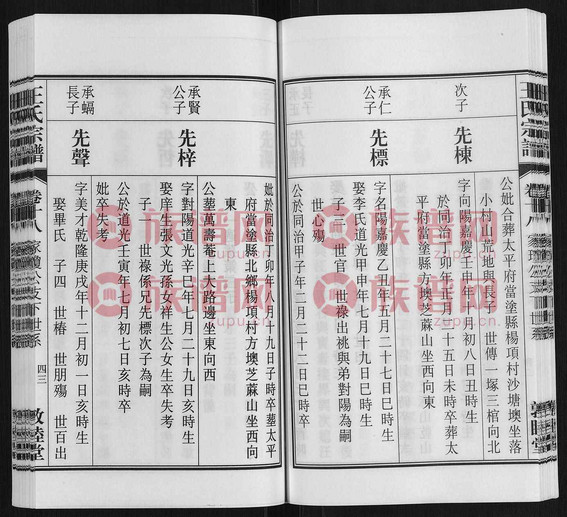 公妣合葬太平府當塗縣楊項村沙塘墺坐落
小村山荒地與長子世傳一塚三棺向北
次子
先棟
字向陽嘉慶壬申年十月初八日丑時生
於同治丁卯年三月二十五日未時卒葬太
平府當塗縣方墺芝蔴山坐西向東
承仁公子
先標
字名陽嘉慶乙丑年五月二十七日巳時生
娶李氏道光甲申年七月十九日巳時生
子三 世官 世祿出祧與弟對陽為嗣
世心殤
公於同治甲子年二月二十二日巳時卒
妣於同治丁卯年八月十九日子時卒墓太平
府當塗縣北鄉楊項村方墺芝蔴山坐西向
東
公墓萬壽菴上大路邊坐東向西
承賢公子
先梓
字對陽道光辛巳年七月二十九日亥時生
娶庠生張文光孫女祥生公女生卒失考
子一 世祿係兄先標次子為嗣
公於道光壬寅年七月初七日亥時卒
妣卒失考
承蝠長子
先聲
字美才乾隆庚戌年十二月初一日亥時生
娶畢氏 子四 世椿 世朋殤 世百出
王氏宗譜
卷十八
四三
敦睦堂
族譜网
zupu.cn